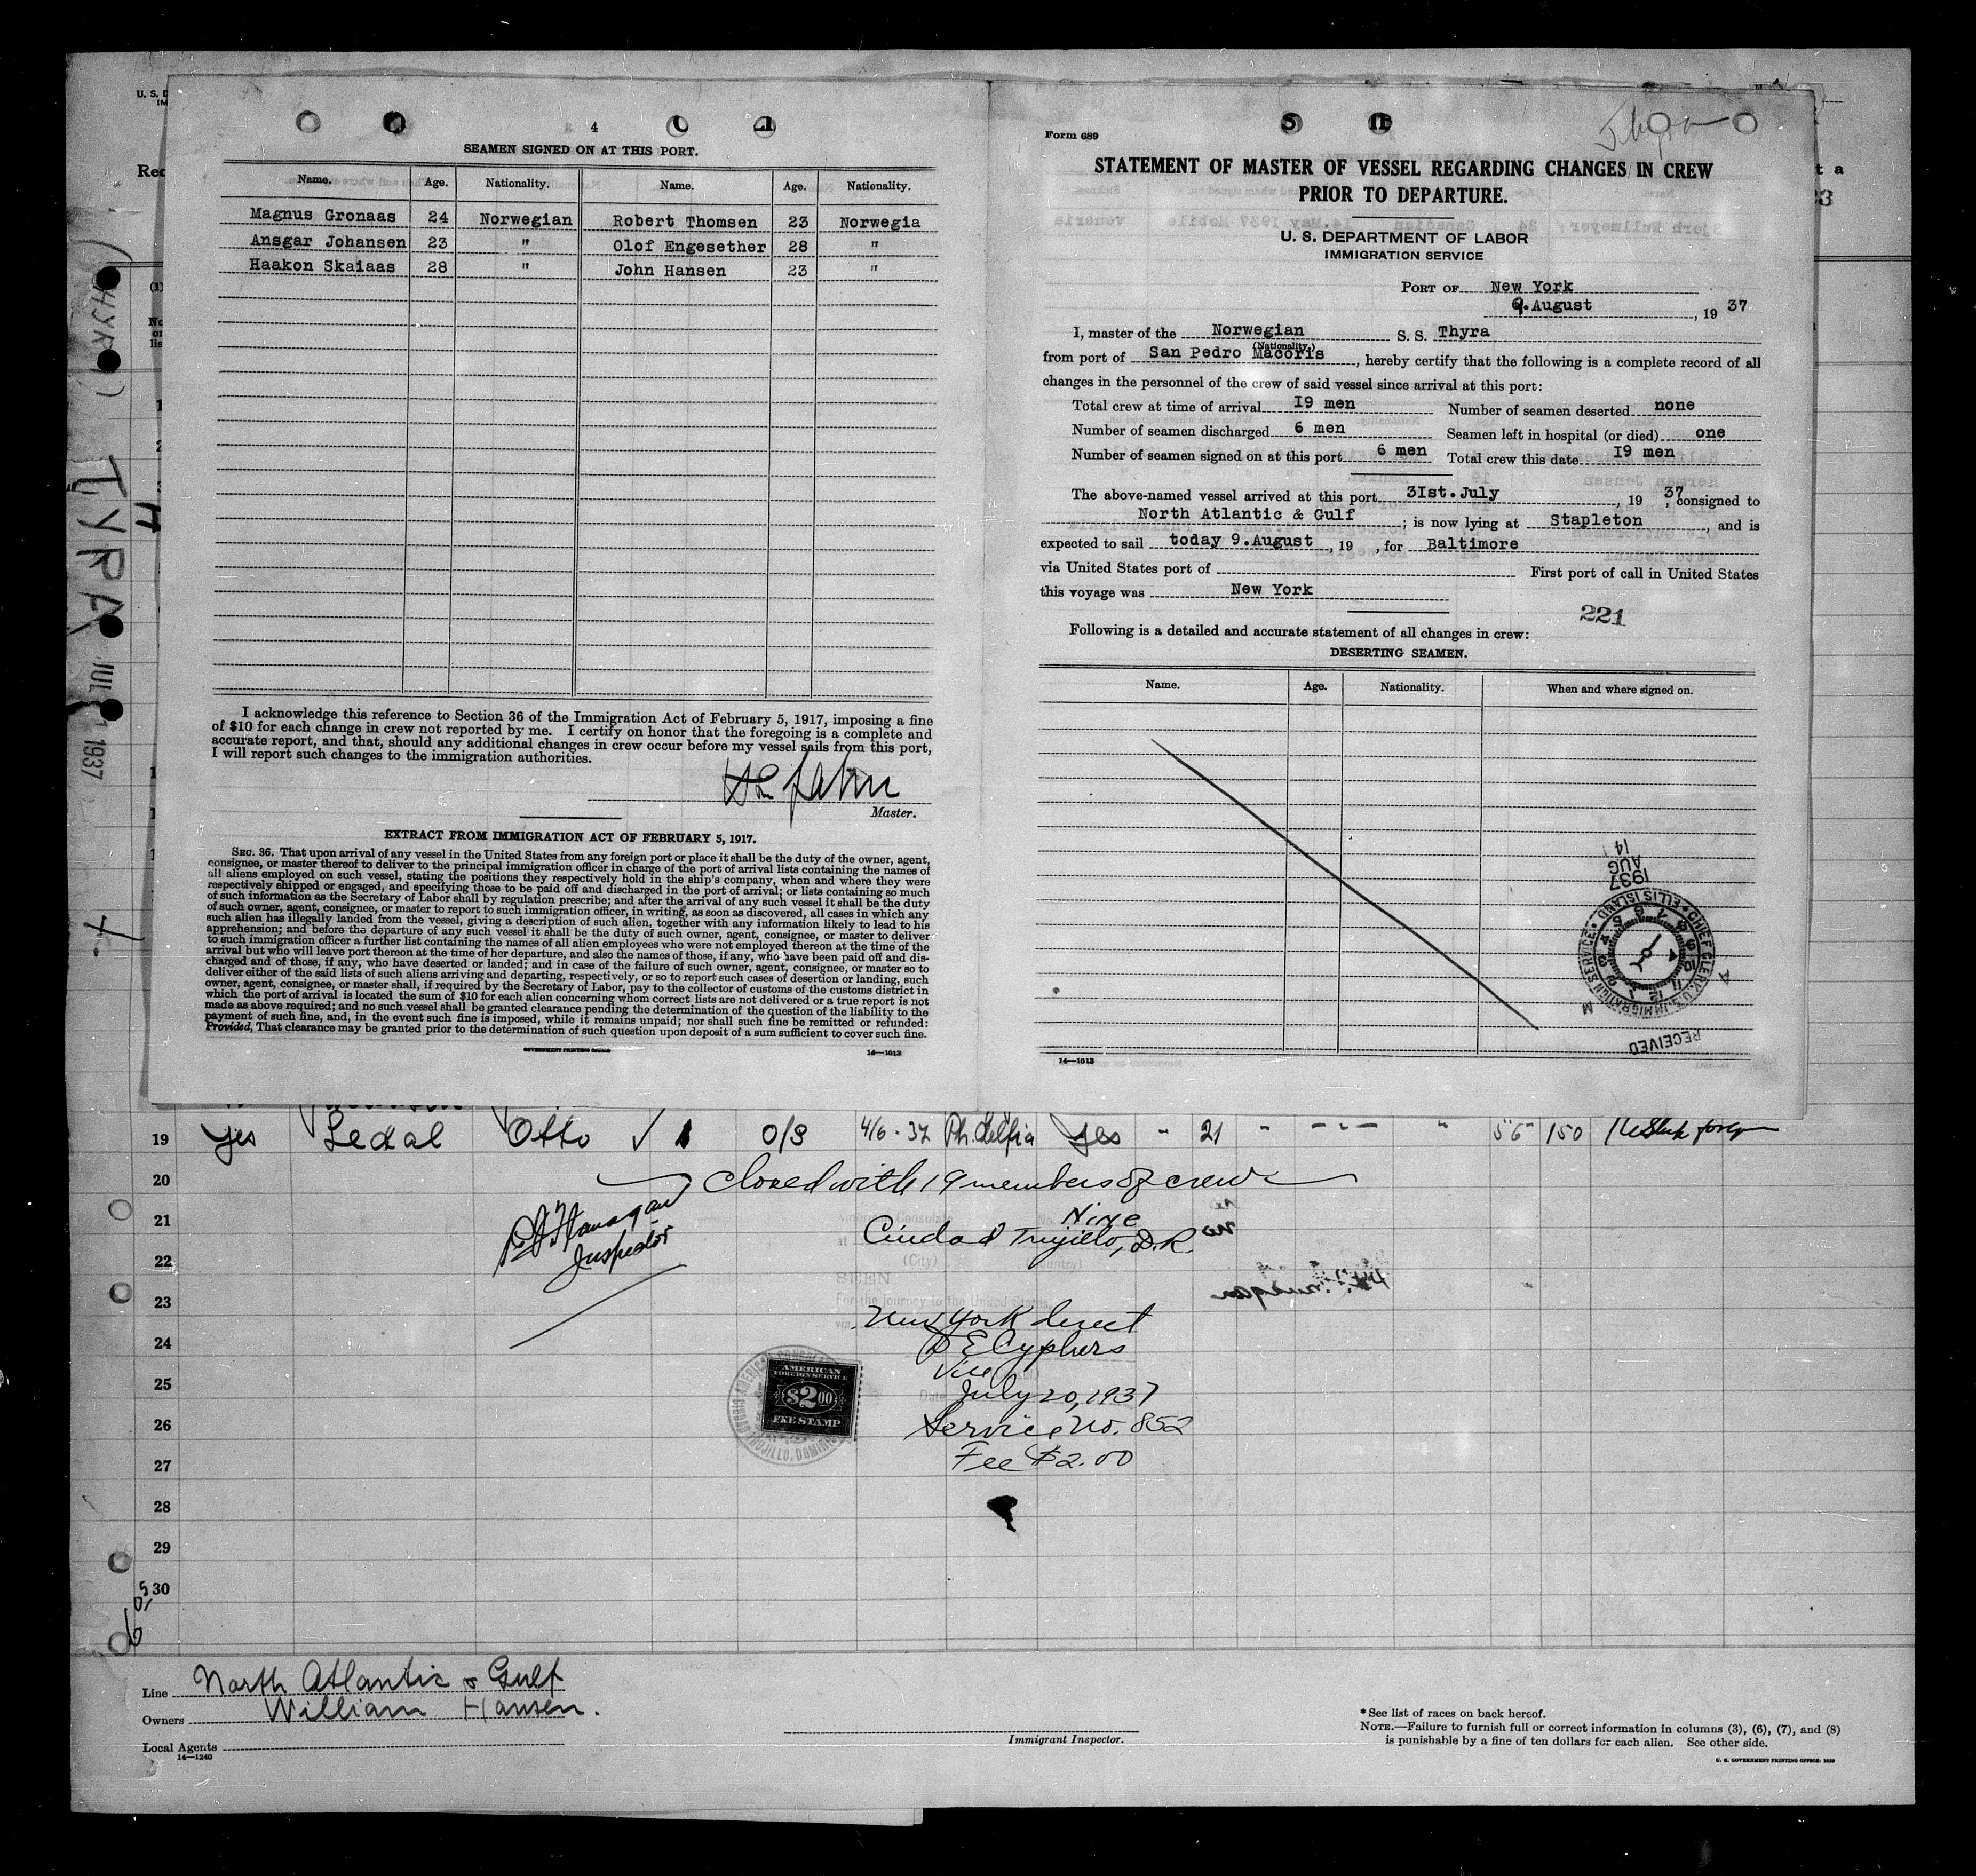 4
SEAMEN SIGNED ON AT THIS PORT.
Name. Age. Nationality. Name. Age. Nationality.
Magnus Gronaas 24 Norwegian Robert Thomsen 23 Norwegia
Ansgar Johansen 23 " Olof Engesether 28 "
Haakon Skaiaas 28 " John Hansen 23 "
I acknowledge this reference to Section 36 of the Immigration Act of February 5, 1917, imposing a fine
of $10 for each change in crew not reported by me. I certify on honor that the foregoing is a complete and
accurate report, and that, should any additional changes in crew occur before my vessel sails from this port,
I will report such changes to the immigration authorities.
Master.
EXTRACT FROM IMMIGRATION ACT OF FEBRUARY 5, 1917.
SEC. 36. That upon arrival of any vessel in the United States from any foreign port or place it shall be the duty of the owner, agent,
consignee, or master thereof to deliver to the principal immigration officer in charge of the port of arrival lists containing the names of
all aliens employed on such vessel, stating the positions they respectively hold in the ship's company, when and where they were
respectively shipped or engaged, and specifying those to be paid off and discharged in the port of arrival; or lists containing so much
of such information as the Secretary of Labor shall by regulation prescribe; and after the arrival of any such vessel it shall be the duty
of such owner, agent, consignee, or master to report to such immigration officer, in writing, as soon as discovered, all cases in which any
such alien has illegally landed from the vessel, giving a description of such alien, together with any information likely to lead to his
apprehension; and before the departure of any such vessel it shall be the duty of such owner, agent, consignee, or master to deliver
to such immigration officer a further list containing the names of all alien employees who were not employed thereon at the time of the
arrival but who will leave port thereon at the time of her departure, and also the names of those, if any, who have been paid off and dis-
charged and of those, if any, who have deserted or landed; and in case of the failure of such owner, agent, consignee, or master so to
deliver either of the said lists of such aliens arriving and departing, respectively, or so to report such cases of desertion or landing, such
owner, agent, consignee, or master shall, if required by the Secretary of Labor, pay to the collector of customs of the customs district in
which the port of arrival is located the sum of $10 for each alien concerning whom correct lists are not delivered or a true report is not
made as above required; and no such vessel shall be granted clearance pending the determination of the question of the liability to the
payment of such fine, and, in the event such fine is imposed, while it remains unpaid; nor shall such fine be remitted or refunded:
Provided, That clearance may be granted prior to the determination of such question upon deposit of a sum sufficient to cover such fine.
GOVERNMENT PRINTING OFFICE 14—1613
Form 689
Thyra
STATEMENT OF MASTER OF VESSEL REGARDING CHANGES IN CREW
PRIOR TO DEPARTURE.
U. S. DEPARTMENT OF LABOR
IMMIGRATION SERVICE
PORT OF New York
9.August, 19 37
I, master of the Norwegian S. S. Thyra
(Nationality.)
from port of San Pedro Macoris, hereby certify that the following is a complete record of all
changes in the personnel of the crew of said vessel since arrival at this port:
Total crew at time of arrival 19 men Number of seamen deserted none
Number of seamen discharged 6 men Seamen left in hospital (or died) one
Number of seamen signed on at this port 6 men Total crew this date 19 men
The above-named vessel arrived at this port 31st.July, 19 37, consigned to
North Atlantic & Gulf; is now lying at Stapleton, and is
expected to sail today 9.August, 19 , for Baltimore
via United States port of First port of call in United States
this voyage was New York
221
Following is a detailed and accurate statement of all changes in crew:
DESERTING SEAMEN.
Name. Age. Nationality. When and where signed on.
1937
AUG
14
CHIEF CLERK U.S. IMMIGRATION SERVICE • ELLIS ISLAND
RECEIVED
14—1613
JUL 1937
19 Yes Ledal Otto 1 O/S 4/6-37 Ph.delfia Yes " 21 " " " 5'6" 150
20 Closed with 19 members of crew
21 Nine
Inspector
22 Ciudad Trujillo, D.R.
(City)
SEEN
For the journey to the United States
23
New York direct
24
D E Cyphers
Vice
25 July 20, 1937
26 Service No. 852
27 Fee $2.00
28
29
30
AMERICAN
FOREIGN SERVICE
$2.00
FEE STAMP
Line North Atlantic & Gulf
Owners William Hansen.
Local Agents
14—1240
Immigrant Inspector.
* See list of races on back hereof.
NOTE.—Failure to furnish full or correct information in columns (3), (6), (7), and (8)
is punishable by a fine of ten dollars for each alien. See other side.
U. S. GOVERNMENT PRINTING OFFICE